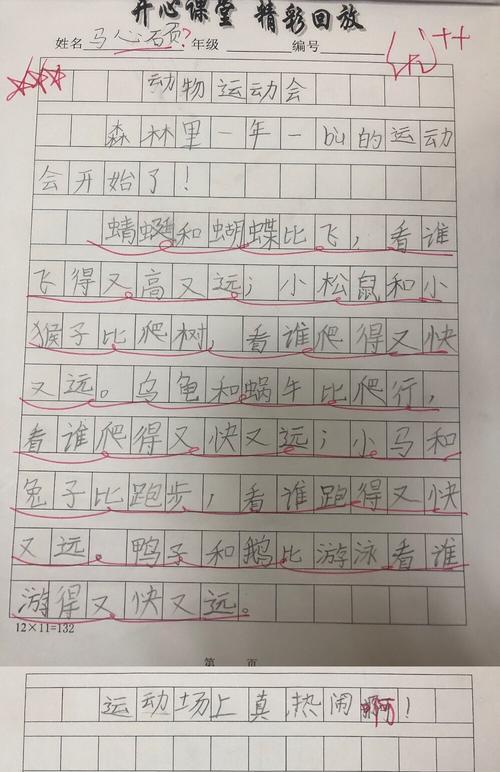 开心课堂 精彩回放
姓名 马心硕? 年级 编号 优++
动物运动会
森林里一年一bù的运动
会开始了!
蜻蜓和蝴蝶比飞,看谁
飞得又高又远;小松鼠和小
猴子比爬树,看谁爬得又快
又远。乌龟和蜗牛比爬行,
看谁爬得又快又远;小马和
兔子比跑步,看谁跑得又快
又远。鸭子和鹅比游泳看谁
游得又快又远。
12×11=132
第 页
运动场上真热闹啊!